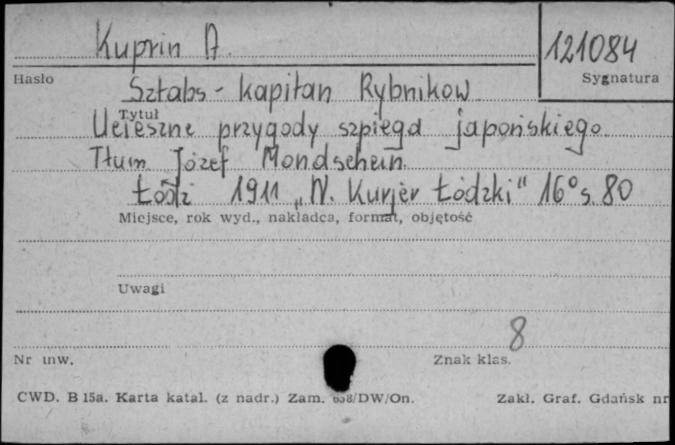 Kuprin A.
121084
Hasło
Sygnatura
Sztabs-kapitan Rybnikow
Tytuł
Ucieszne przygody szpiega japońskiego.
Tłum Józef Mondschein.
Łódź 1911 „N. Kurjer Łódzki" 16° s. 80
Miejsce, rok wyd., nakładca, format, objętość
Uwagi
8
Nr inw.
Znak klas.
CWD. B 15a. Karta katal. (z nadr.) Zam. /DW/On.
Zakł. Graf. Gdańsk nr